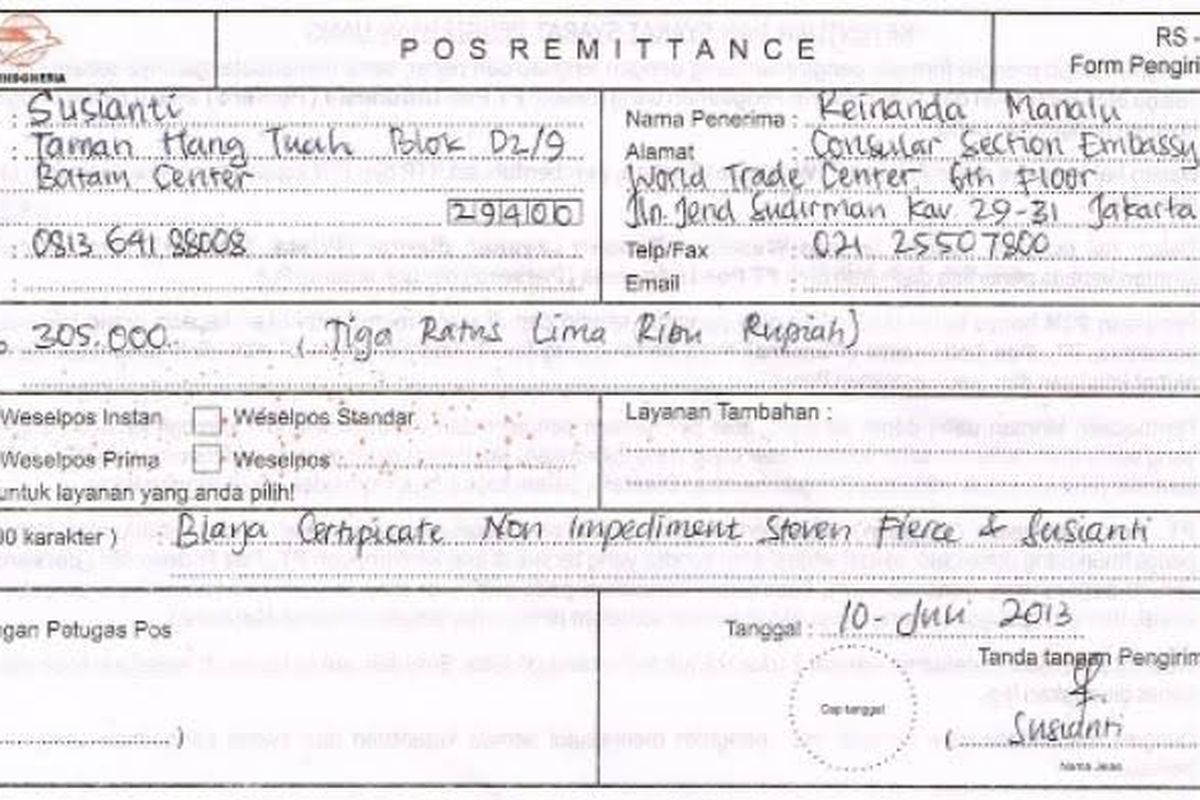 POS REMITTANCE
RS -
Form Pengiri
: Susianti
: Taman Hang Tuah Blok D2/9
Batam Center
29400
: 0813 641 88008
:
Nama Penerima : Reinanda Manalu
Alamat : Consular Section Embassy
World Trade Center, 6th Floor
Jln. Jend Sudirman Kav. 29-31 Jakarta
Telp/Fax : 021. 2550 7800
Email :
305.000 ( Tiga Ratus Lima Ribu Rupiah )
Weselpos Instan Weselpos Standar
Weselpos Prima Weselpos
untuk layanan yang anda pilih!
Layanan Tambahan :
00 karakter ) : Biaya Certificate Non Impediment Steven Pierce & Susianti
ngan Petugas Pos
)
Tanggal : 10 - Juli 2013
Tanda tangan Pengirim
Cap tanggal
( Susianti
Nama Jelas